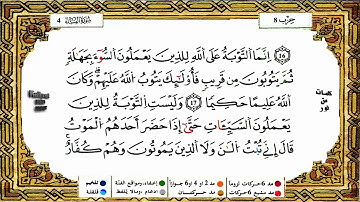 4 سورة النساء
حزب 8
١٦ إِنَّمَا اَ۬لتَّوْبَةُ عَلَى اَ۬للَّهِ لِلذِينَ يَعْمَلُونَ اَ۬لسُّوٓءَ بِجَهَٰلَةٖ
ثُمَّ يَتُوبُونَ مِن قَرِيبٖ فَأُوْلَٰٓئِكَ يَتُوبُ اُ۬للَّهُ عَلَيْهِمْ وَكَانَ
اَ۬للَّهُ عَلِيماً حَكِيماً ١٧ وَلَيْسَتِ اِ۬لتَّوْبَةُ لِلذِينَ
يَعْمَلُونَ اَ۬لسَّيِّـَٔاتِ حَتَّىٰٓ إِذَا حَضَرَ أَحَدَهُمُ اُ۬لْمَوْتُ
قَالَ إِنِّے تُبْتُ اُ۬لَٰنَ وَلَا اَ۬لذِينَ يَمُوتُونَ وَهُمْ كُفَّارٌ
كلمات
من
نور
مد 6 حركات لزوما
مد 2 أو 4 أو 6 جوازا
مد مشبع 6 حركات
مد حركتان
إخفاء، ومواقع الغنة
إدغام، وما لا يلفظ
تفخيم
قلقلة